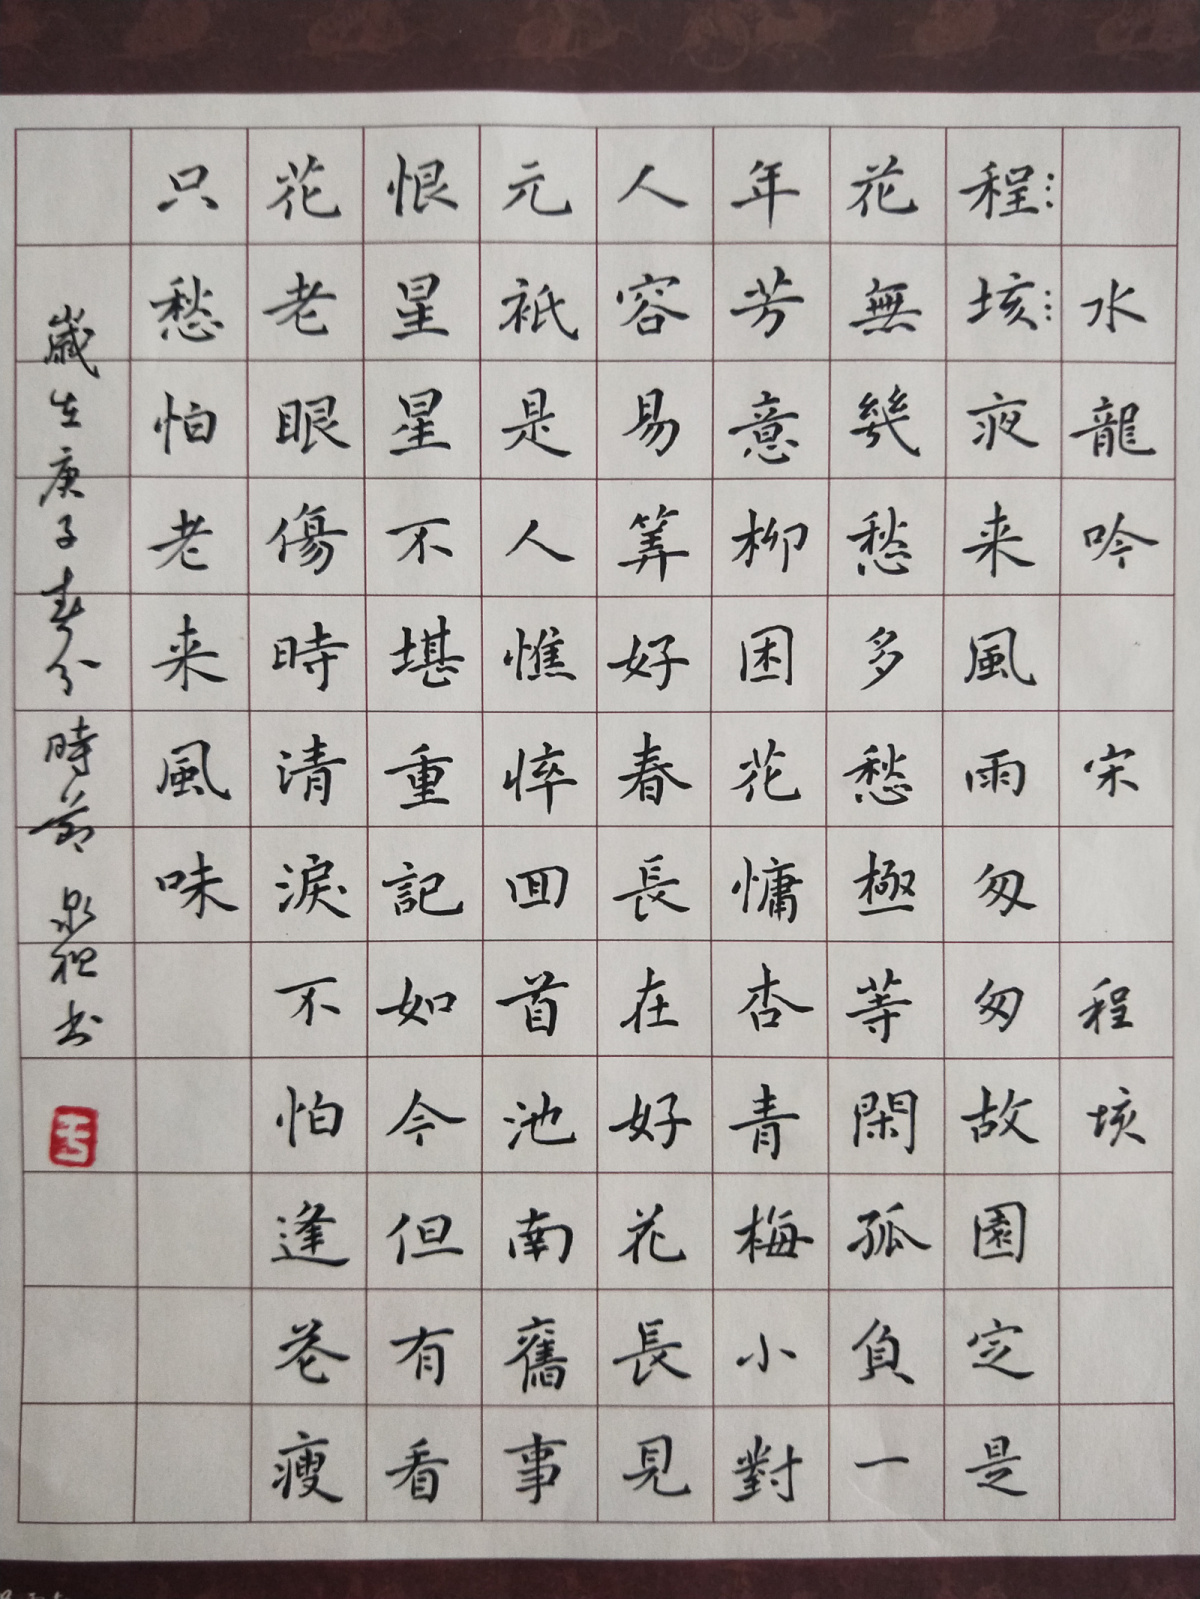 水龍吟 宋 程垓
程垓夜来風雨匆匆故園定是
花無幾愁多愁極等閑孤負一
年芳意柳困花慵杏青梅小對
人容易筭好春長在好花長見
元祇是人憔悴囬首池南舊事
恨星星不堪重記如今但有看
花老眼傷時清淚不怕逢花瘦
只愁怕老来風味
歲在庚子春分時節 泉祖书